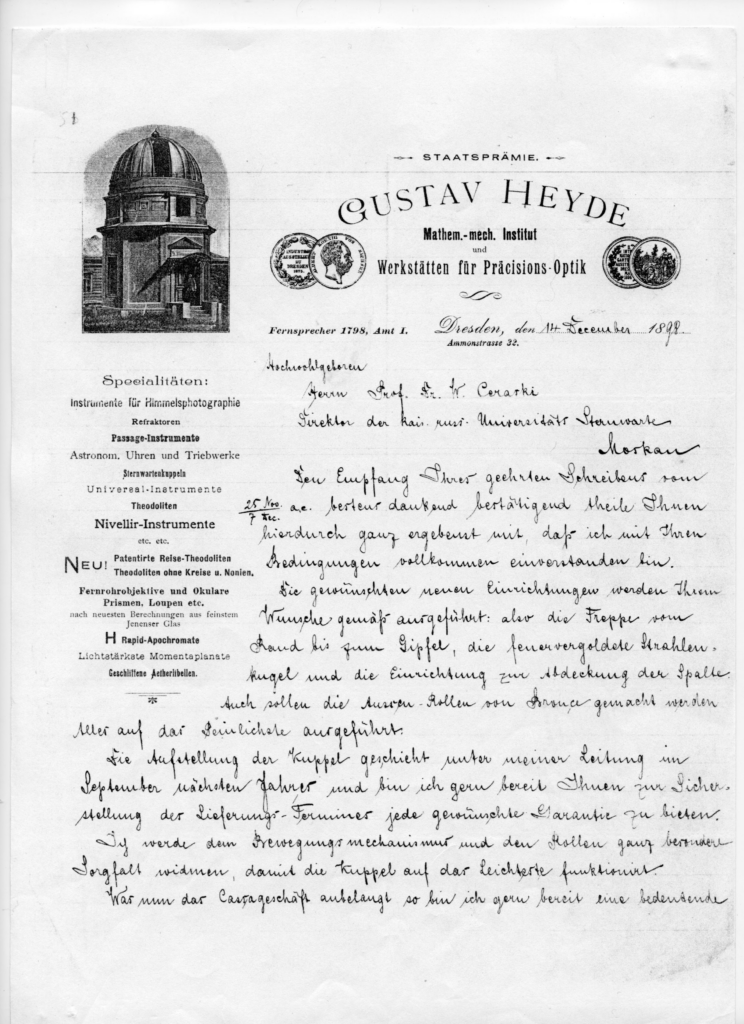 STAATSPRÄMIE.
GUSTAV HEYDE
Mathem.-mech. Institut
und
Werkstätten für Präcisions-Optik
Fernsprecher 1798, Amt I.
Dresden, den 14 December 1898.
Ammonstrasse 32.
Specialitäten:
Instrumente für Himmelsphotographie
Refraktoren
Passage-Instrumente
Astronom. Uhren und Triebwerke
Sternwartenkuppeln
Universal-Instrumente
Theodoliten
Nivellir-Instrumente
etc. etc.
NEU! Patentirte Reise-Theodoliten
Theodoliten ohne Kreise u. Nonien.
Fernrohrobjektive und Okulare
Prismen, Loupen etc.
nach neuesten Berechnungen aus feinstem
Jenenser Glas
H Rapid-Apochromate
Lichtstärkste Momentaplanate
Geschliffene Aetherlibellen.
Hochwohlgeboren
Herrn Prof. Dr. W. Ceraski
Direktor der kais. russ. Universitäts Sternwarte
Moskau
Den Empfang Ihres geehrten Schreibens vom
25 Nov./7 Dec. a.c. bestens dankend bestätigend theile Ihnen
hierdurch ganz ergebenst mit, daß ich mit Ihren
Bedingungen vollkommen einverstanden bin.
Die gewünschten neuen Einrichtungen werden Ihrem
Wunsche gemäß ausgeführt: also die Treppe vom
Rand bis zum Gipfel, die feuervergoldete Strahlen-
kugel und die Einrichtung zur Abdeckung der Spalte.
Auch sollen die Aussen-Rollen von Bronce gemacht werden
Alles auf das Peinlichste ausgeführt.
Die Aufstellung der Kuppel geschieht unter meiner Leitung im
September nächsten Jahres und bin ich gern bereit Ihnen zur Sicher-
stellung des Lieferungs-Termines jede gewünschte Garantie zu bieten.
Ich werde dem Bewegungsmechanismus und den Rollen ganz besondere
Sorgfalt widmen, damit die Kuppel auf das Leichteste funktionirt.
Was nun das Cassageschäft anbelangt so bin ich gern bereit eine bedeutende